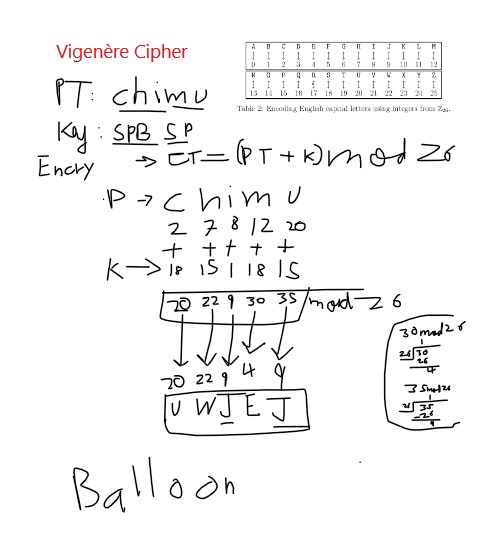 Vigenère Cipher
A B C D E F G H I J K L M
0 1 2 3 4 5 6 7 8 9 10 11 12
N O P Q R S T U V W X Y Z
13 14 15 16 17 18 19 20 21 22 23 24 25
Table 2: Encoding English capital letters using integers from Z26.
PT: chimu
Key: SPB SP
Encry → CT = (PT + K) mod 26
P → c h i m u
2 7 8 12 20
+ + + + +
K → 18 15 1 18 15
20 22 9 30 35 / mod 26
20 22 9 4 9
U W J E J
30 mod 26
1
26 30
26
4
35 mod 26
1
26 35
-26
9
Balloon